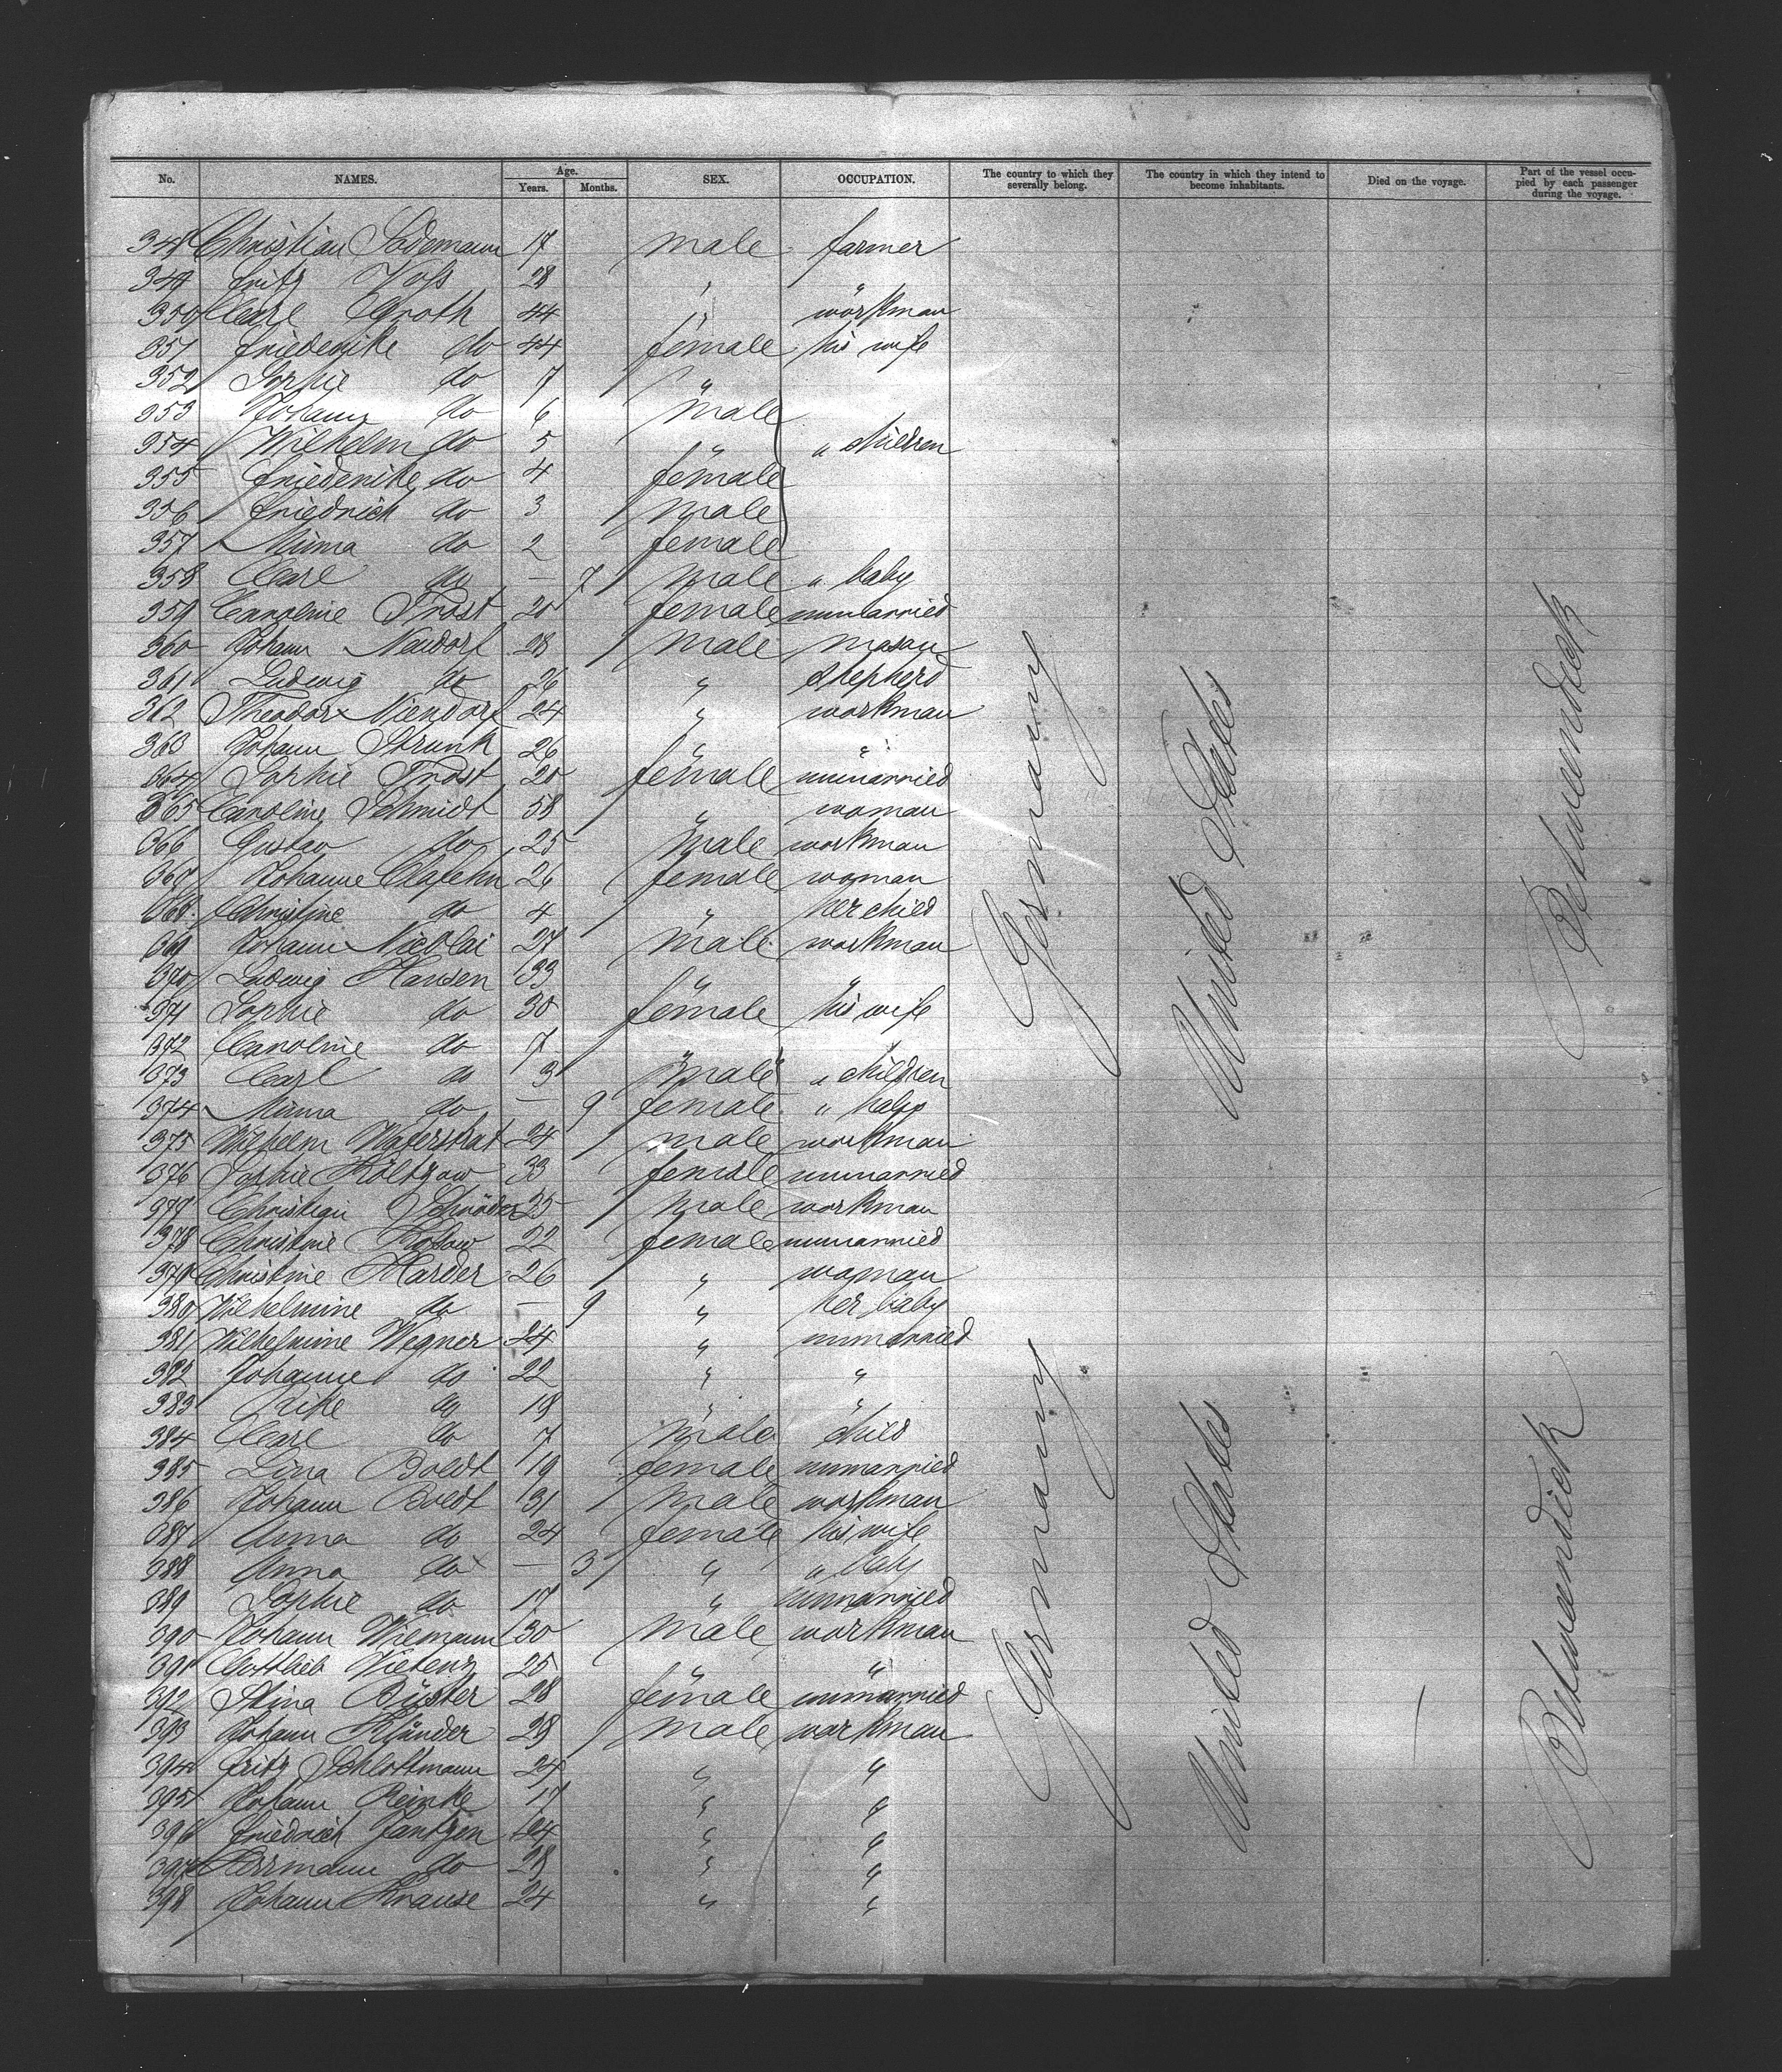 No. NAMES. Age. Years. Months. SEX. OCCUPATION. The country to which they severally belong. The country in which they intend to become inhabitants. Died on the voyage. Part of the vessel occupied by each passenger during the voyage.
348 Christian Lodemann 17 male farmer
349 Fritz Voss 28 " "
350 Carl Groth 44 " workman
351 Friederike do 44 female his wife
352 Sophie do 7 "
353 Johann do 6 male
354 Wilhelm do 5 " " children
355 Friederike do 4 female
356 Friedrich do 3 male
357 Minna do 2 female
358 Carl do — 7 male " baby
359 Caroline Trost 20 female unmarried
360 Johann Neudorf 28 male mason
361 Ludwig do 26 " shepherd
362 Theodor Niendorf 24 " workman
363 Johann Strunk 26 " "
364 Sophie Trost 20 female unmarried
365 Caroline Schmidt 58 " woman
366 Gustav do 25 male workman
367 Johanne Clasehn 26 female woman
368 Christine do 4 " her child
369 Johann Nicolai 27 male workman
370 Ludwig Hansen 33 " "
371 Sophie do 30 female his wife
372 Caroline do 7 "
373 Carl do 3 male " children
374 Minna do — 9 female " baby
375 Wilhelm Waterstrat 24 male workman
376 Sophie Költzow 33 female unmarried
377 Christian Schröder 25 male workman
378 Christine Kossow 22 female unmarried
379 Christine Harder 26 " woman
380 Wilhelmine do — 9 " her baby
381 Wilhelmine Wegner 24 " unmarried
382 Johanne do 22 " "
383 Rike do 18 " "
384 Carl do 7 male child
385 Lina Boldt 19 female unmarried
386 Johann Boldt 31 male workman
387 Anna do 24 female his wife
388 Anna do — 3 " " baby
389 Sophie do 17 " unmarried
390 Johann Wiemann 30 male workman
391 Gottlieb Vietenz 25 " "
392 Stina Büster 28 female unmarried
393 Johann Klünder 28 male workman
394 Fritz Schlottmann 24 " "
395 Johann Reinke 17 " "
396 Friedrich Jantzen 24 " "
397 Herrmann do 28 " "
398 Johann Krause 24 " "
Germany United States Betweendeck
Germany United States Betweendeck